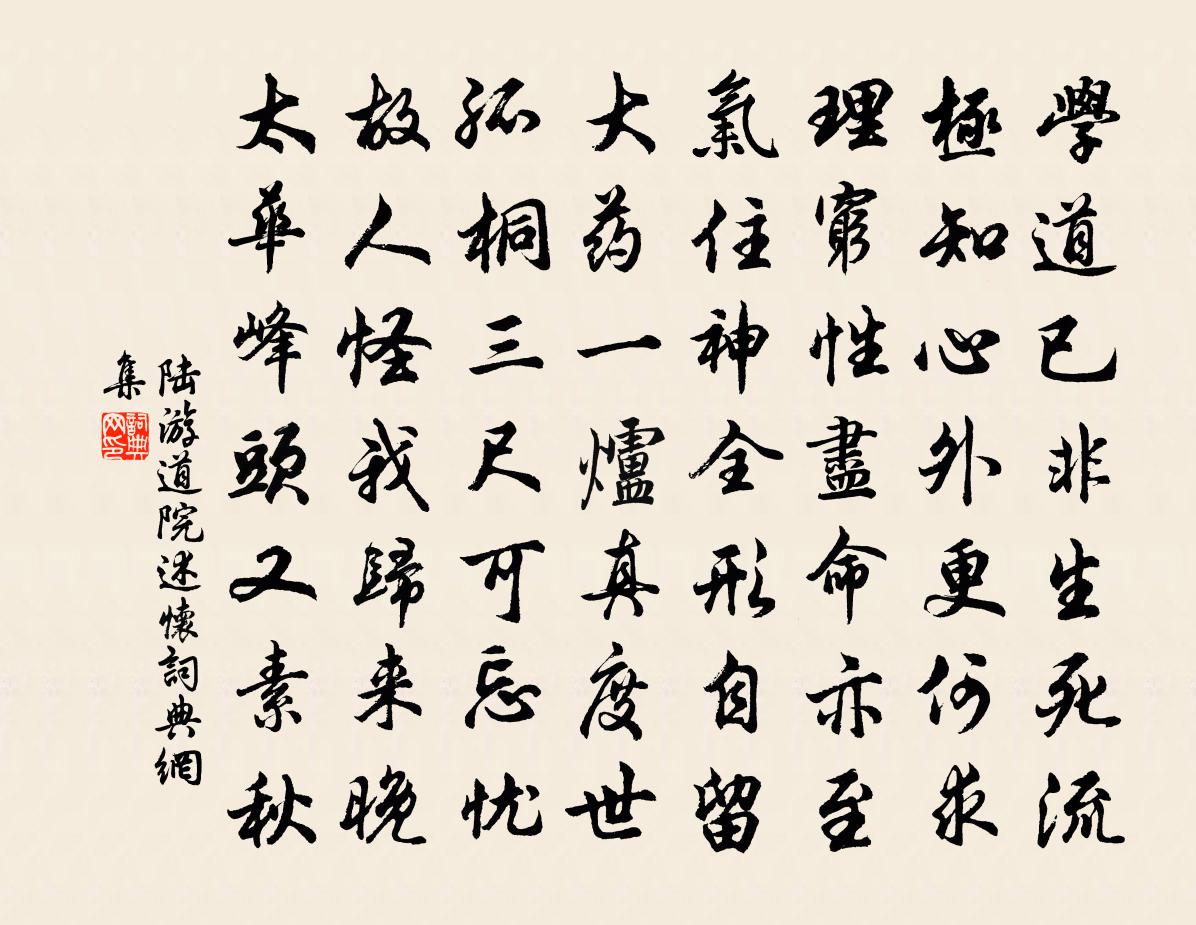 學道已非生死流
極知心外更何求
理窮性盡命亦至
氣住神全形自留
大药一爐真度世
孤桐三尺可忘忧
故人怪我歸来晚
太華峰頭又素秋
陆游道院述懷詞典網
集
詞典
网印